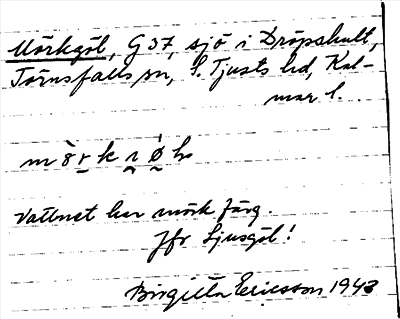 Mörkgöl, G 37, sjö i Dröpshult,
Törnsfalls sn, S. Tjusts hd, Kal-
mar l.
Vattnet har mörk färg.
Jfr Ljusgöl!
Birgitta Ericsson 1943